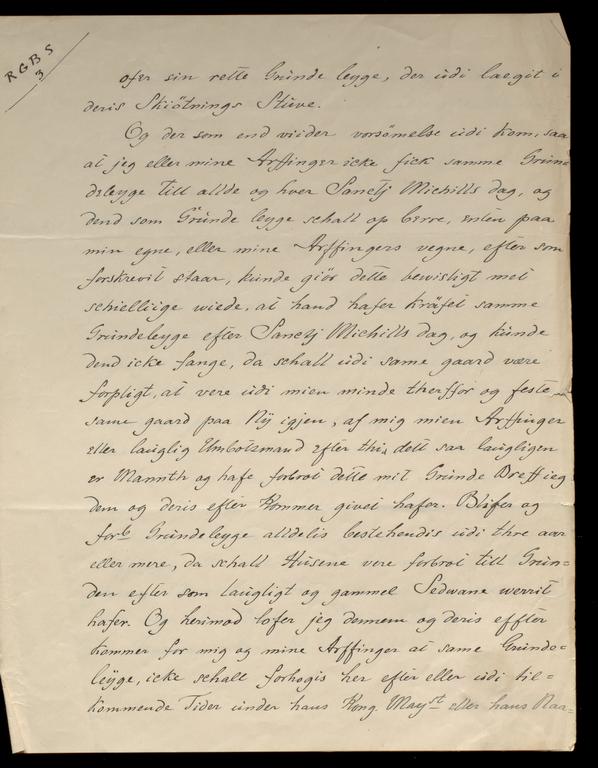 RGBS
3
ofer sin rette Grunde leyge, der udi laegit i
deris Skiötnings Stüve.
Og der som end viider vorsömelse udi kom, saa
at jeg eller mine Arffinger icke fick samme Grün
deleyge till allde og hver Sanctj Michills dag, og
dend som Gründe leyge schall op berre, enten paa
min egne, eller mine Arffingers vegne, efter som
forskrevit staar, kunde giör dette bewisligt met
schielliige wiede, at hand hafer kräfet samme
Gründeleyge efter Sanctj Michills dag, og künde
dend icke fange, da schall udi same gaard være
forpligt, at vere udi mien minde therffor og feste
same gaard paa Nÿ igjen, af mig mien Arffinger
eller lauglig Umbotzmand efter thi, dett saa laugligen
er Mannth og hafe forbrot dette mit Grunde Breff ieg
dem og deris efter Kommer givet hafer. Blifer og
forb Gründeleyge alldelis bestehendis udi thre aar
eller mere, da schall Hüsene vere forbrot till Grün=
den efter som laugligt og gammel Sedwane werrit
hafer. Og herimod lofer jeg dennem og deris effter
kommer for mig og mine Arffinger at same Grunde=
leÿge, icke schall forhogis her efter eller udi til=
kommende Tider ünder hans Kong. Mayst eller hans Raa=